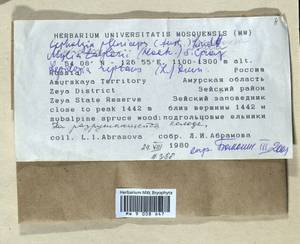 HERBARIUM UNIVERSITATIS MOSQUENSIS (MW)
Cephalozia pleniceps (Aust.) Lindb.
Mylia
Lepidozia reptans (L.) Dum.
54°06' N - 126°55'E, 1100-1300 m alt.
Russia Россия
Amurskaya Territory Амурская область
Zeya District Зейский район
Zeya State Reserve Зейский заповедник
close to peak 1442 m близ вершины 1442 м
subalpine spruce wood:подгольцовые ельники
На разрушающейся колоде.
coll. L.I. Abrasova собр. Л.И.Абрамова
1980
Herbarium MW, Bryophyta
MW 9 008 847